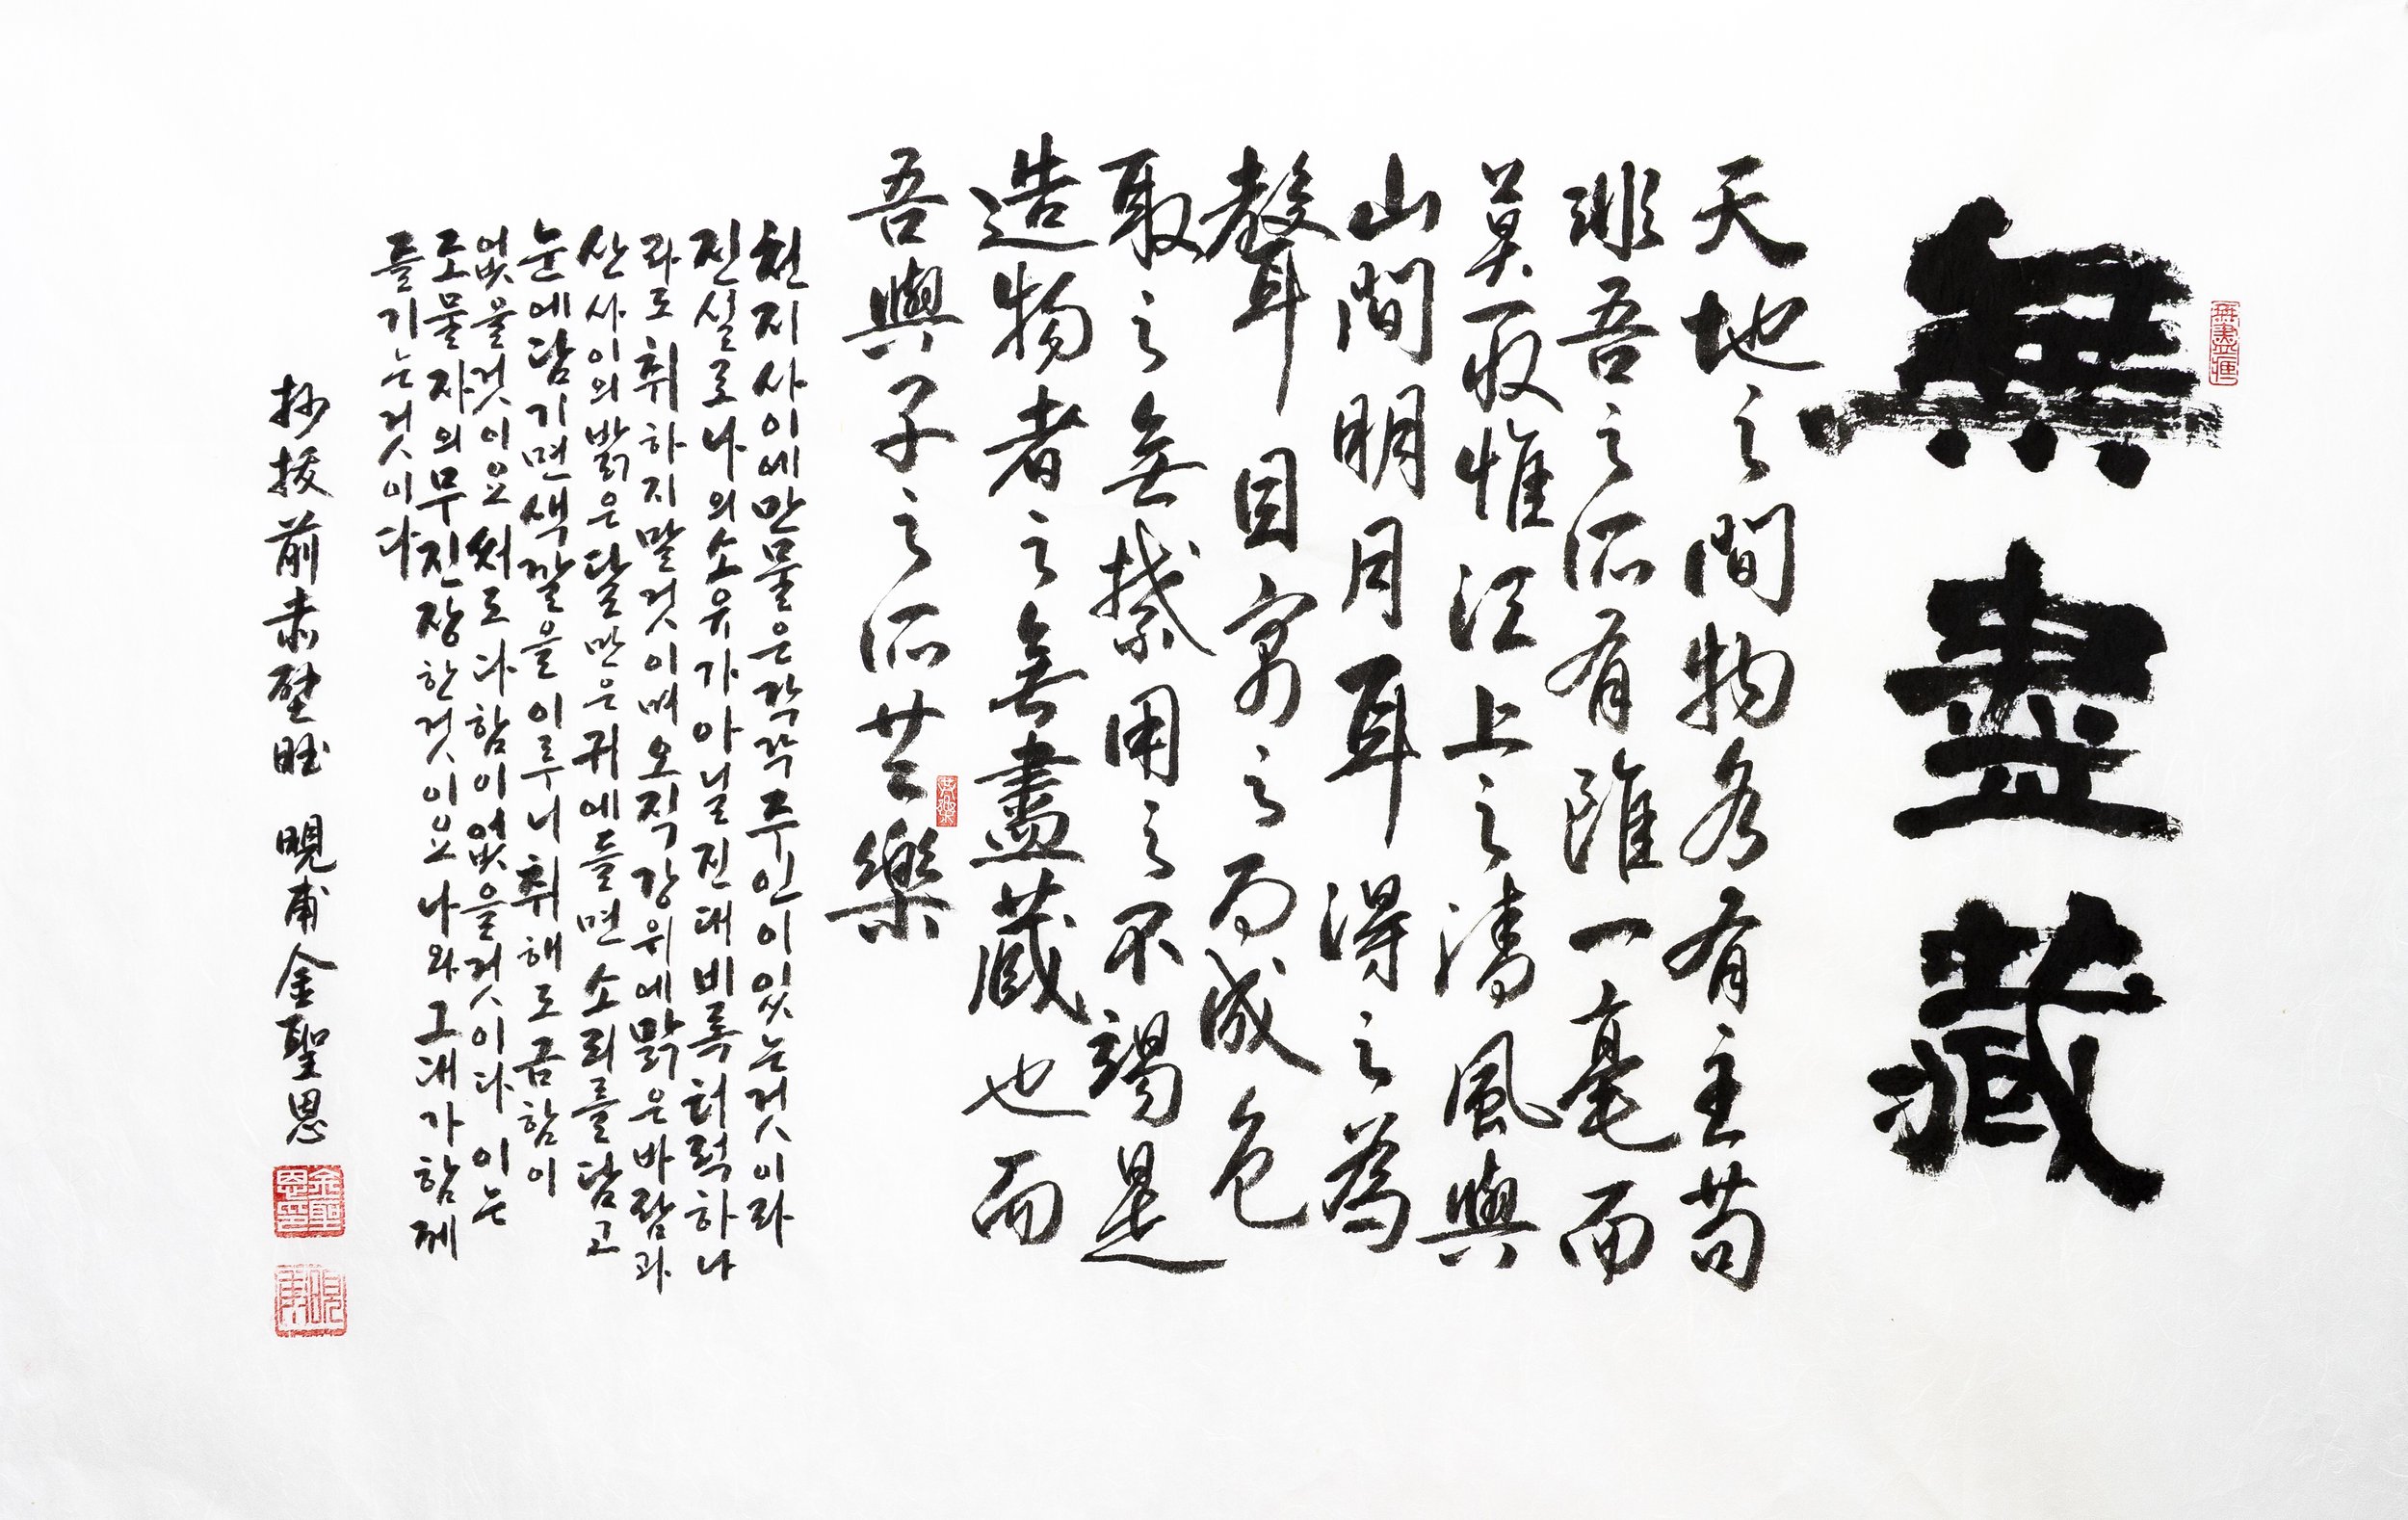 無盡藏
天地之間物各有主苟
非吾之所有雖一毫而
莫取惟江上之清風與
山間明月耳得之為
聲目寓之而成色
取之無禁用之不竭是
造物者之無盡藏也而
吾與子之所共樂
천지사이에만물은각각주인이있는것이라
진실로나의소유가아닐진대비록터럭하나
라도취하지말것이며오직강위에맑은바람과
산사이의밝은달만은귀에들면소리를담고
눈에담기면색깔을이루니취해도금함이
없을것이요써도다함이없을것이다이는
조물자의무진장한것이요나와그대가함께
즐기는것이다
抄拔前赤壁賦 晛甫金聖恩
金聖恩印